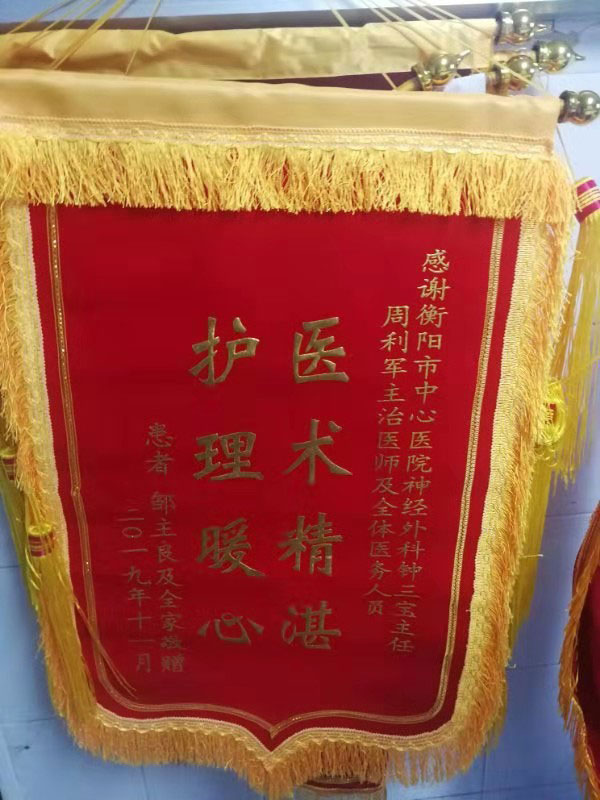 感谢衡阳市中心医院神经外科钟三宝主任
周利军主治医师及全体医务人员
医术精湛
护理暖心
患者 邹主良及全家敬赠
二〇一九年十一月